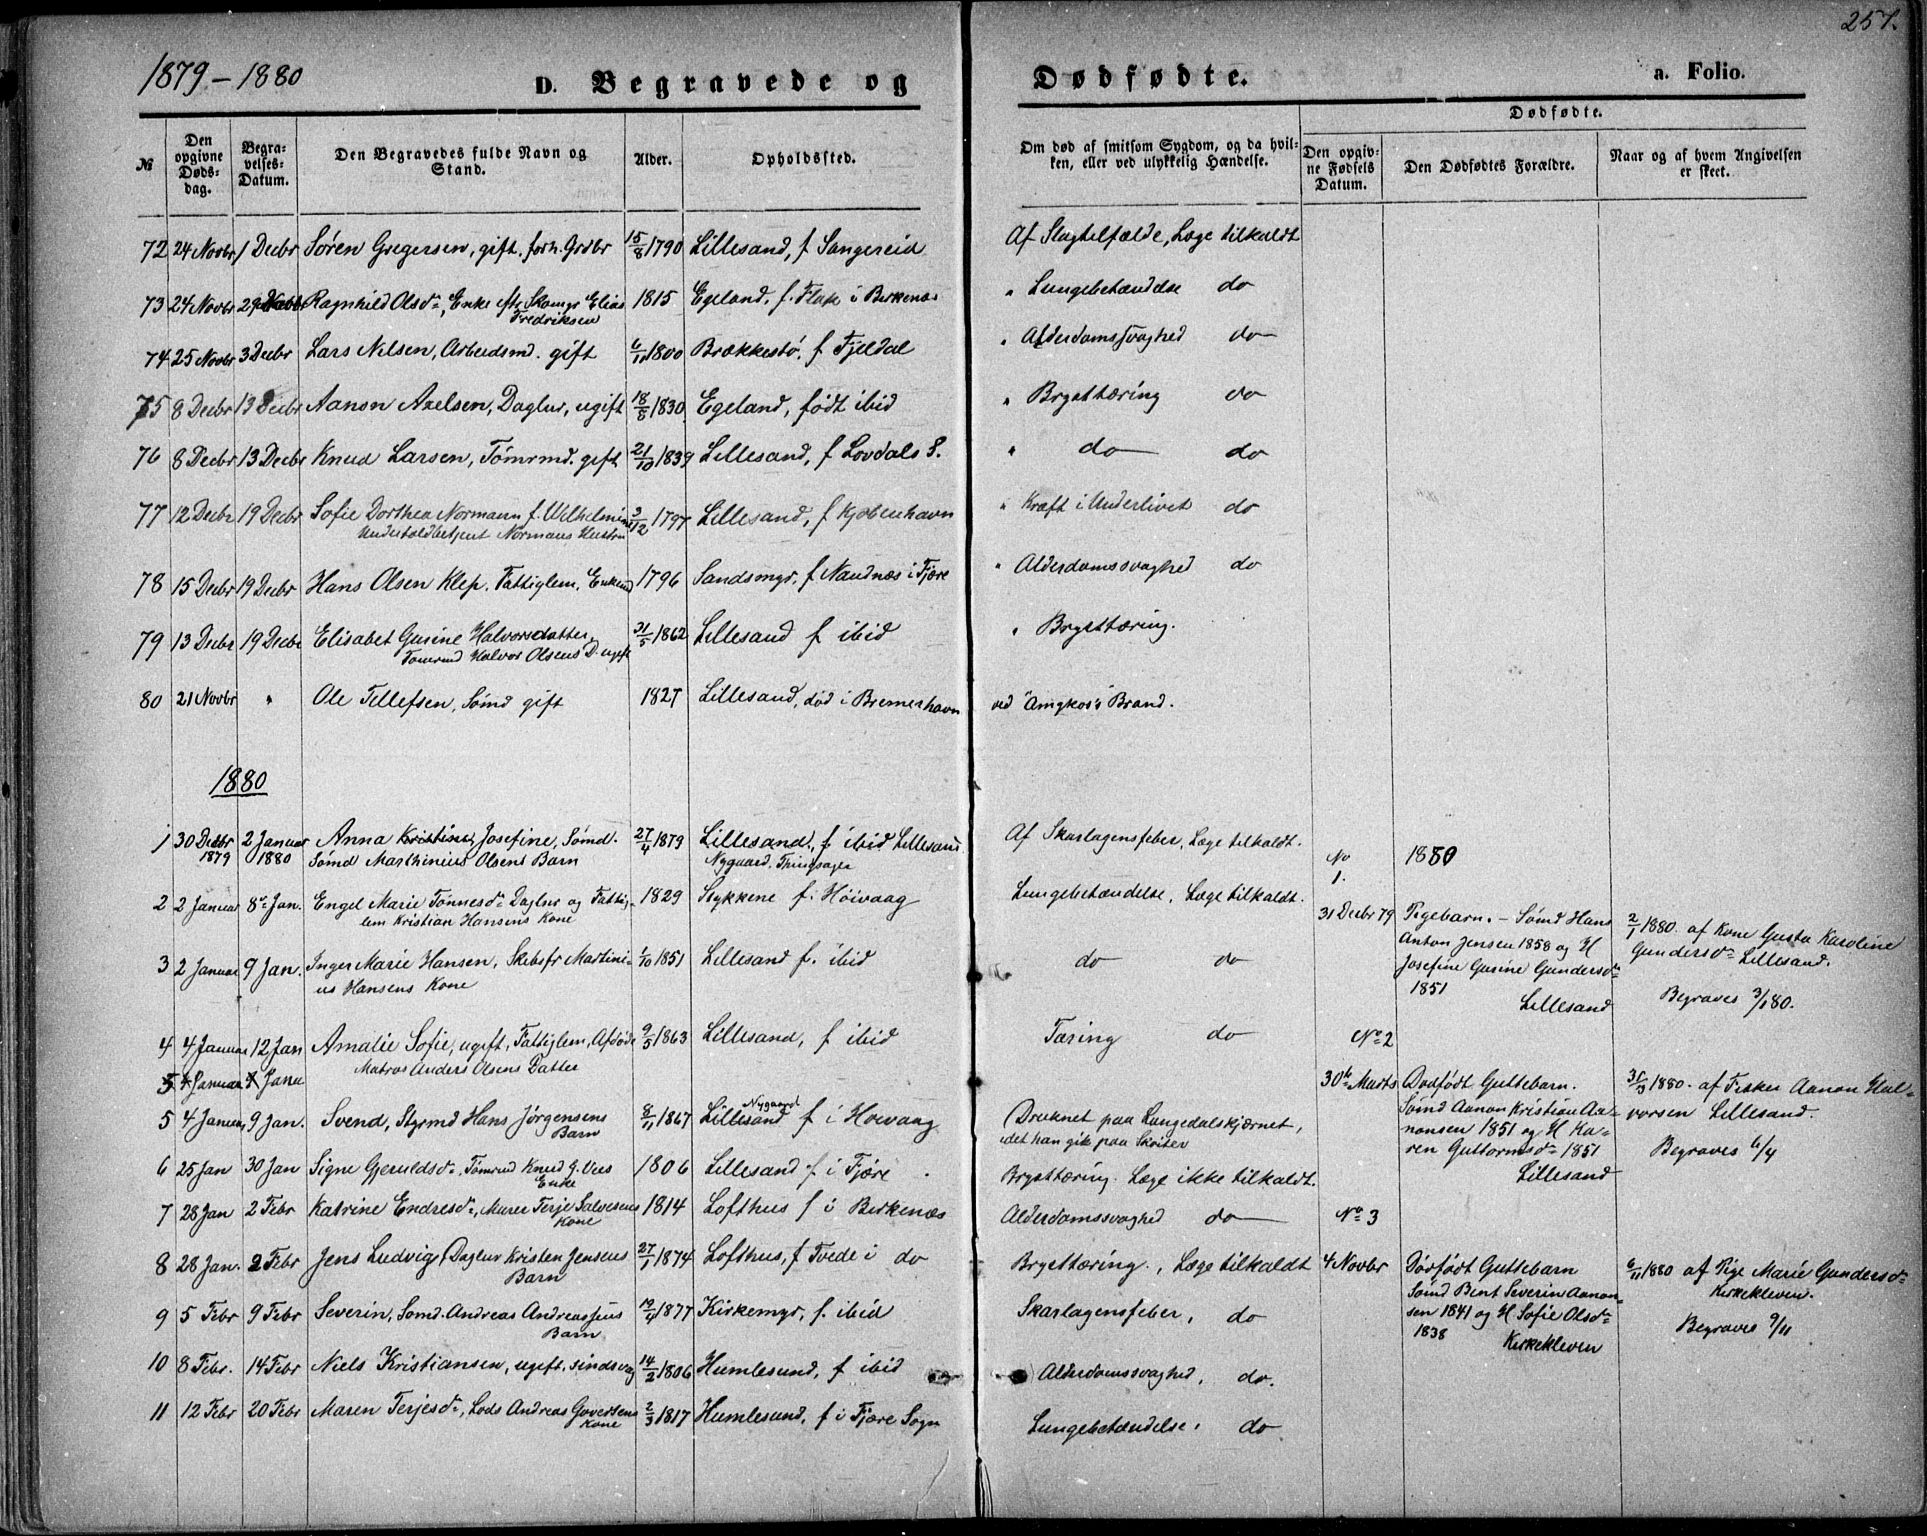 257.
1879 – 1880
D. Begravede og Dødfødte. a. Folio.
№
Den opgivne Dødsdag.
Begravelses-Datum.
Den Begravedes fulde Navn og Stand.
Alder.
Opholdssted.
Om død af smitsom Sygdom, og da hvilken, eller ved ulykkelig Hændelse.
Dødfødte.
Den opgivne Fødsels Datum.
Den Dødfødtes Forældre.
Naar og af hvem Angivelsen er skeet.
72 24 Novbr 1 Decbr Søren Gregersen, gift. forh. Grdbr 15/8 1790 Lillesand, f Sangereid Af Slagtilfælde, Læge tilkaldt
73 24 Novbr 29 Novbr Ragnhild Olsdr, Enke eftr Skomgr Elias Fredriksen 1815 Egeland, f. Flak i Birkenæs " Lungebetændelse do
74 25 Novbr 3 Decbr Lars Nilsen, Arbeidsmd. gift 6/11 1800 Brækkestø, f Fjeldal " Alderdomssvaghed do
75 8 Decbr 13 Decbr Aanon Axelsen, Dagløn, ugift 18/8 1830 Egeland, født ibid " Brysttæring do
76 8 Decbr 13 Decbr Knud Larsen, Tømrmd. gift 21/10 1839 Lillesand, f Lovdals S. " do do
77 12 Decbr 19 Decbr Sofie Dorthea Normann f. Wilhelmine 3/12 1797 Lillesand, f Kjøbenhavn " Kræft i Underlivet do
Normans Hustru
78 15 Decbr 19 Decbr Hans Olsen Klep. Fattiglem. Enkemd 1796 Sandsmyr, f Nandnæs i Fjære " Alderdomssvaghed do
79 13 Decbr 19 Decbr Elisabet Gusine Halvorsdatter, 31/5 1862 Lillesand f ibid " Brysttæring.
Tømrmd Halvor Olsens D. ugift
80 21 Novbr " Ole Tellefsen, Sømd gift 1827 Lillesand, død i Bremerhavn ved "Amgkor's" Brand.
1880
1 30 Decbr 1879 2 Januar 1880 Anna Kristine, Josefine, Sømd. 27/4 1879 Lillesand, f ibid Lillesand Af Skarlagensfeber, Læge tilkaldt.
Sømd Marthinius Olsens Barn Nygaard. Thingsager
2 2 Januar 8de Jan. Engel Marie Tønnesdr Daglnr og Fattiglem Kristian Hansens Kone 1829 Stykkene f. Höivaag Lungebetændelse, Læge tilkaldt.
3 2 Januar 9 Jan. Inger Marie Hansen, Skibsfr Martinius Hansens Kone 6/10 1851 Lillesand f. ibid do do
4 4 Januar 12 Jan Amalie Sofie, ugift, Fattiglem, Afdøde 9/5 1863 Lillesand, f ibid Tæring do
Matros Anders Olsens Datter
5 4 Januar
5 4 Januar 9 Jan. Svend, Styrmd Hans Jørgensens Barn 8/11 1867 Lillesand Nygaard f i Hoivaag Druknet paa Langedalskjærnet,
idet han gik paa Skøiter
6 25 Jan 30 Jan Signe Gjeruldsdr. Tømrmd Knud G. Ves Enke 1806 Lillesand f i Fjære Brysttæring. Læge ikke tilkaldt.
7 28 Jan 2 Febr Katrine Endresdr, Murer Terje Salvesens Kone 1814 Lofthus f i Birkenæs Alderdomssvaghed do
8 28 Jan. 2 Febr Jens Ludvig, Daglnr Kristen Jensens Barn 27/1 1874 Lofthus, f Tvede i do Brysttæring, Læge tilkaldt
9 5 Febr 9 Febr Severin, Sømd. Andreas Andreassens Barn 19/4 1877 Kirkemyr, f. ibid Skarlagensfeber, do
10 8 Febr. 14 Febr Niels Kristiansen, ugift. sindsvag 14/2 1806 Humlesund, f ibid Alderdomssvaghed, do.
11 12 Febr 20 Febr Maren Terjesdr, Lods Andreas Goversens Kone 2/3 1817 Humlesund, f i Fjære Sogn Lungebetændelse, do
No 1880
1.
31 Decbr 79 Pigebarn. – Sømd Hans
Anton Jensen 1858 og H
Josefine Gusine Gundersdr
1851
Lillesand
2/1 1880. af Kone Gusta Karoline
Gundersdr Lillesand.
Begraves 3/1 80.
No 2
30te Marts Dødfødt Guttebarn.
Sømd Aanon Kristian Aanonsen 1851 og H Karen Guttormsdr 1851
Lillesand
31/3 1880. af Fisker Aanon Halvorsen Lillesand.
Begraves 6/4
No 3
4 Novbr Dødfødt Guttebarn
Sømd Bent Severin Aanonsen 1841 og H Sofie Olsdr
1838
Kirkekleven
6/11 1880 af Pige Marie Gundersdr
Kirkekleven.
Begraves 9/11